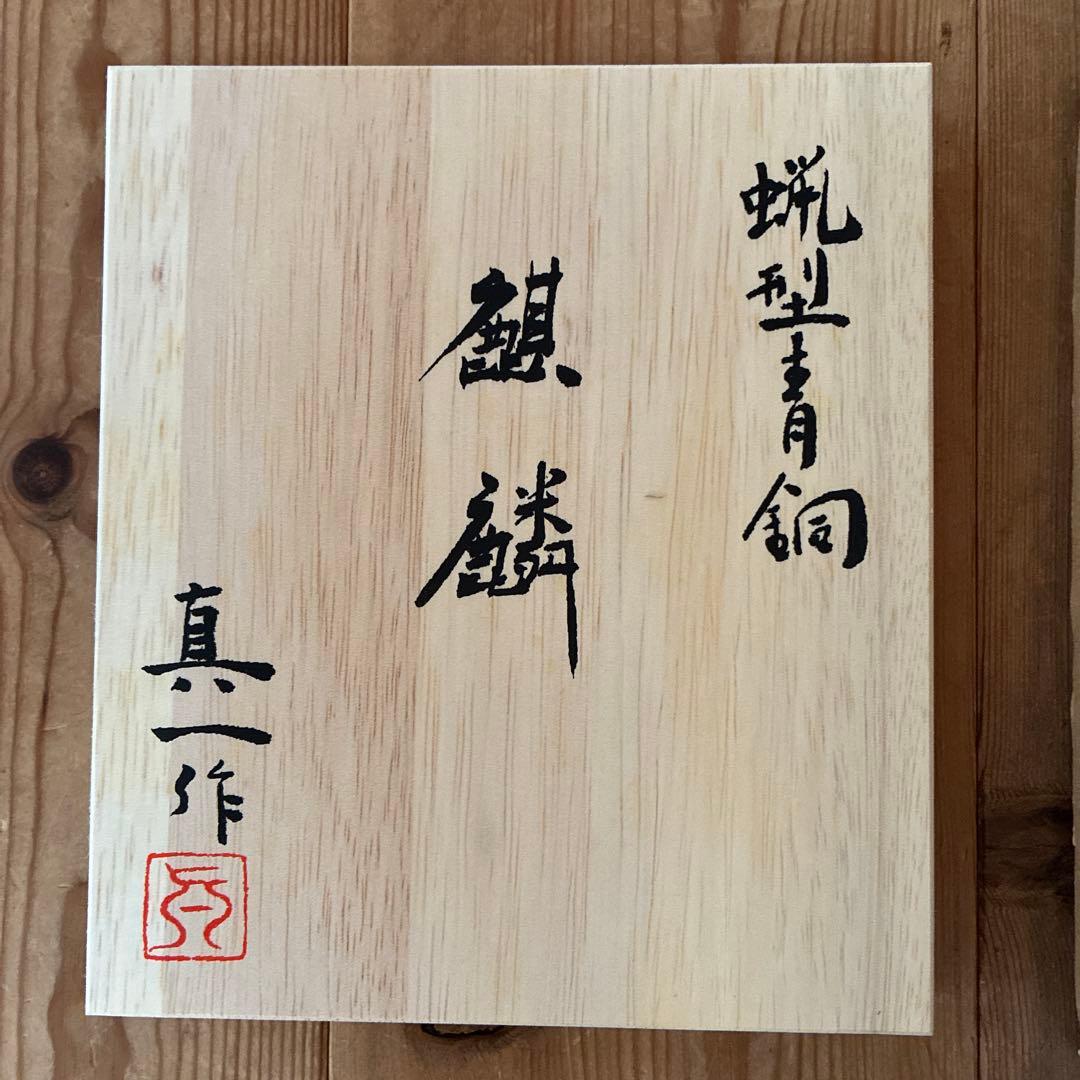 蝋型青銅
麒麟
真一作